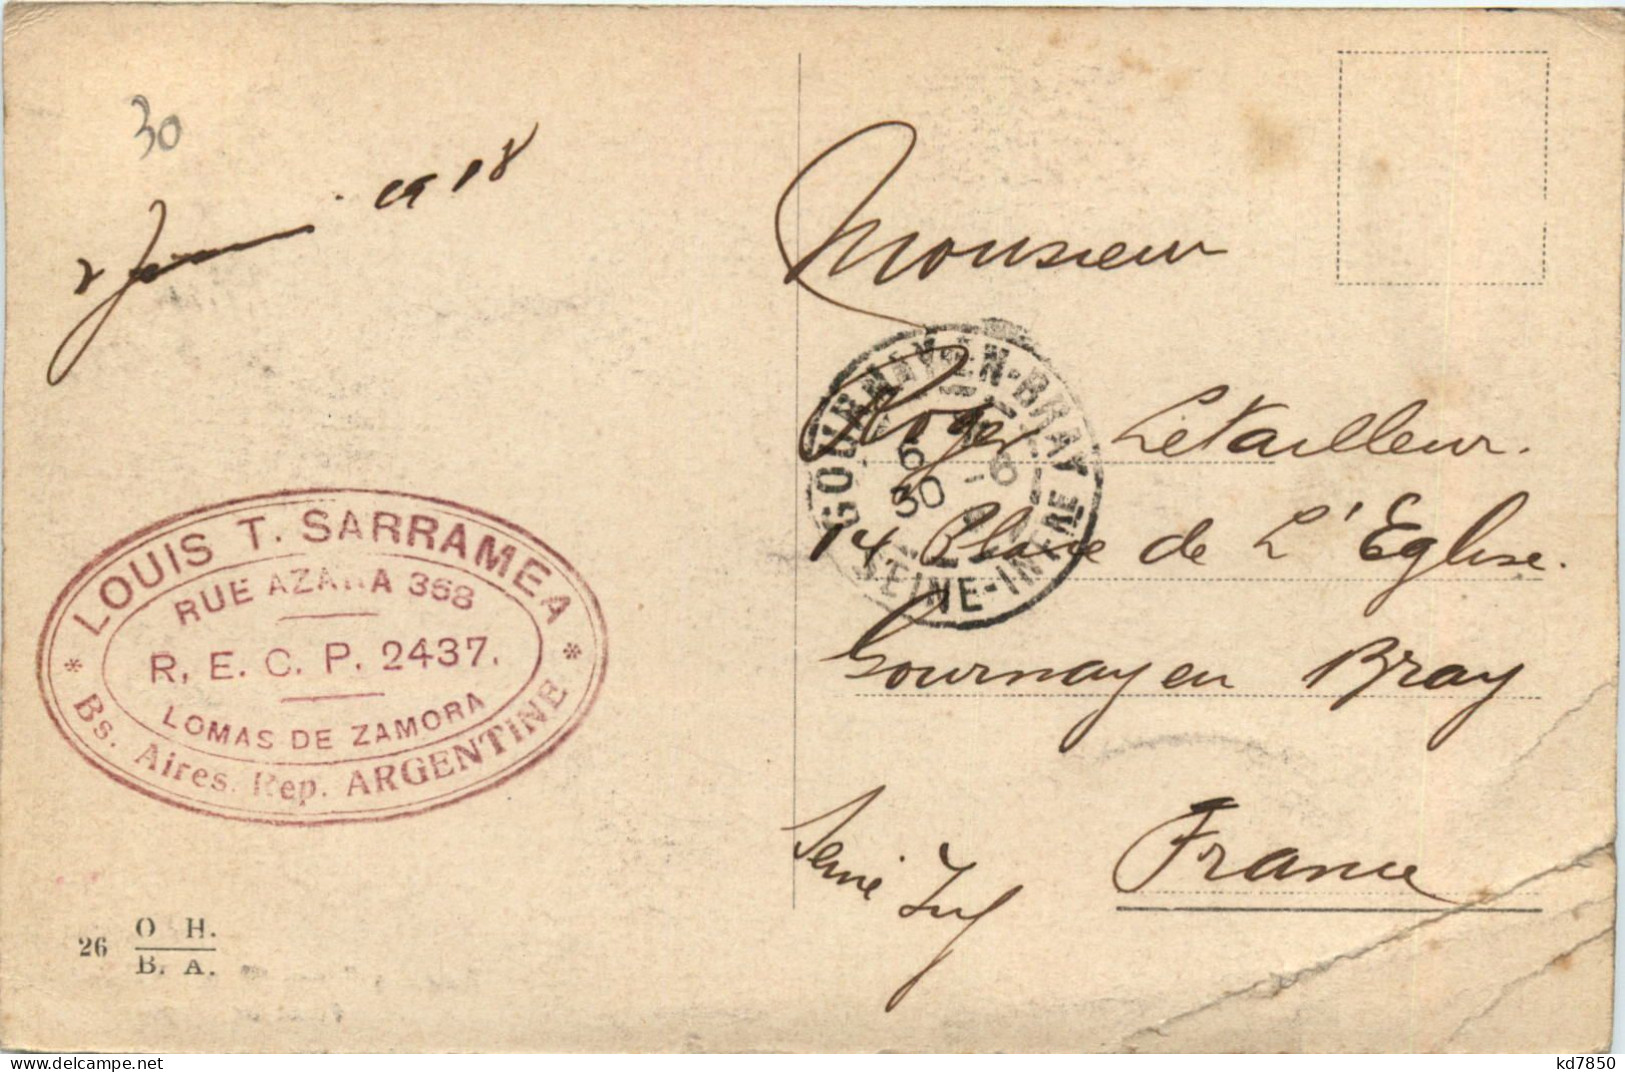 30
1918
Monsieur
Roger Letailleur.
14 Place de L'Eglise.
Gournay en Bray
Seine Inf
France
GOURNAY-EN-BRAY
6
30
SEINE-INFRE
LOUIS T. SARRAMEA
RUE AZARA 368
R. E. C. P. 2437.
LOMAS DE ZAMORA
* Bs. Aires. Rep. ARGENTINE *
26 O H.
B. A.
kd7850